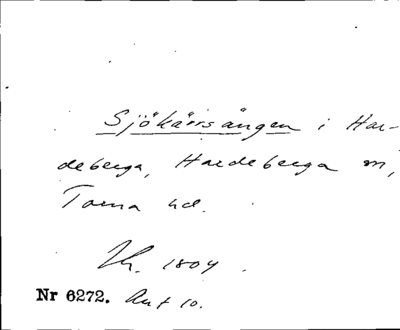 Sjökärrsängen i Har-
deberga, Hardeberga sn,
Torna hd.
1804.
Nr 6272. Akt 10.